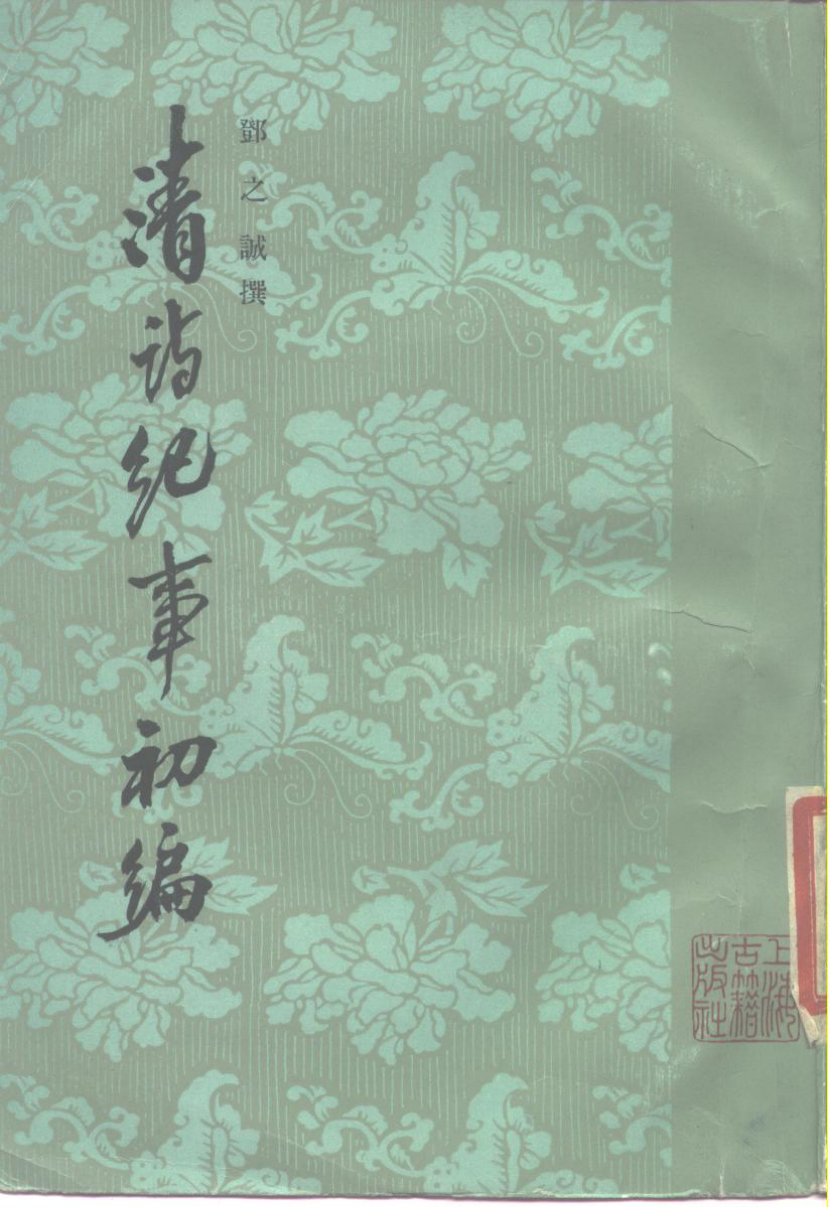 鄧之誠撰
清詩紀事初編
上海
古籍
出版社